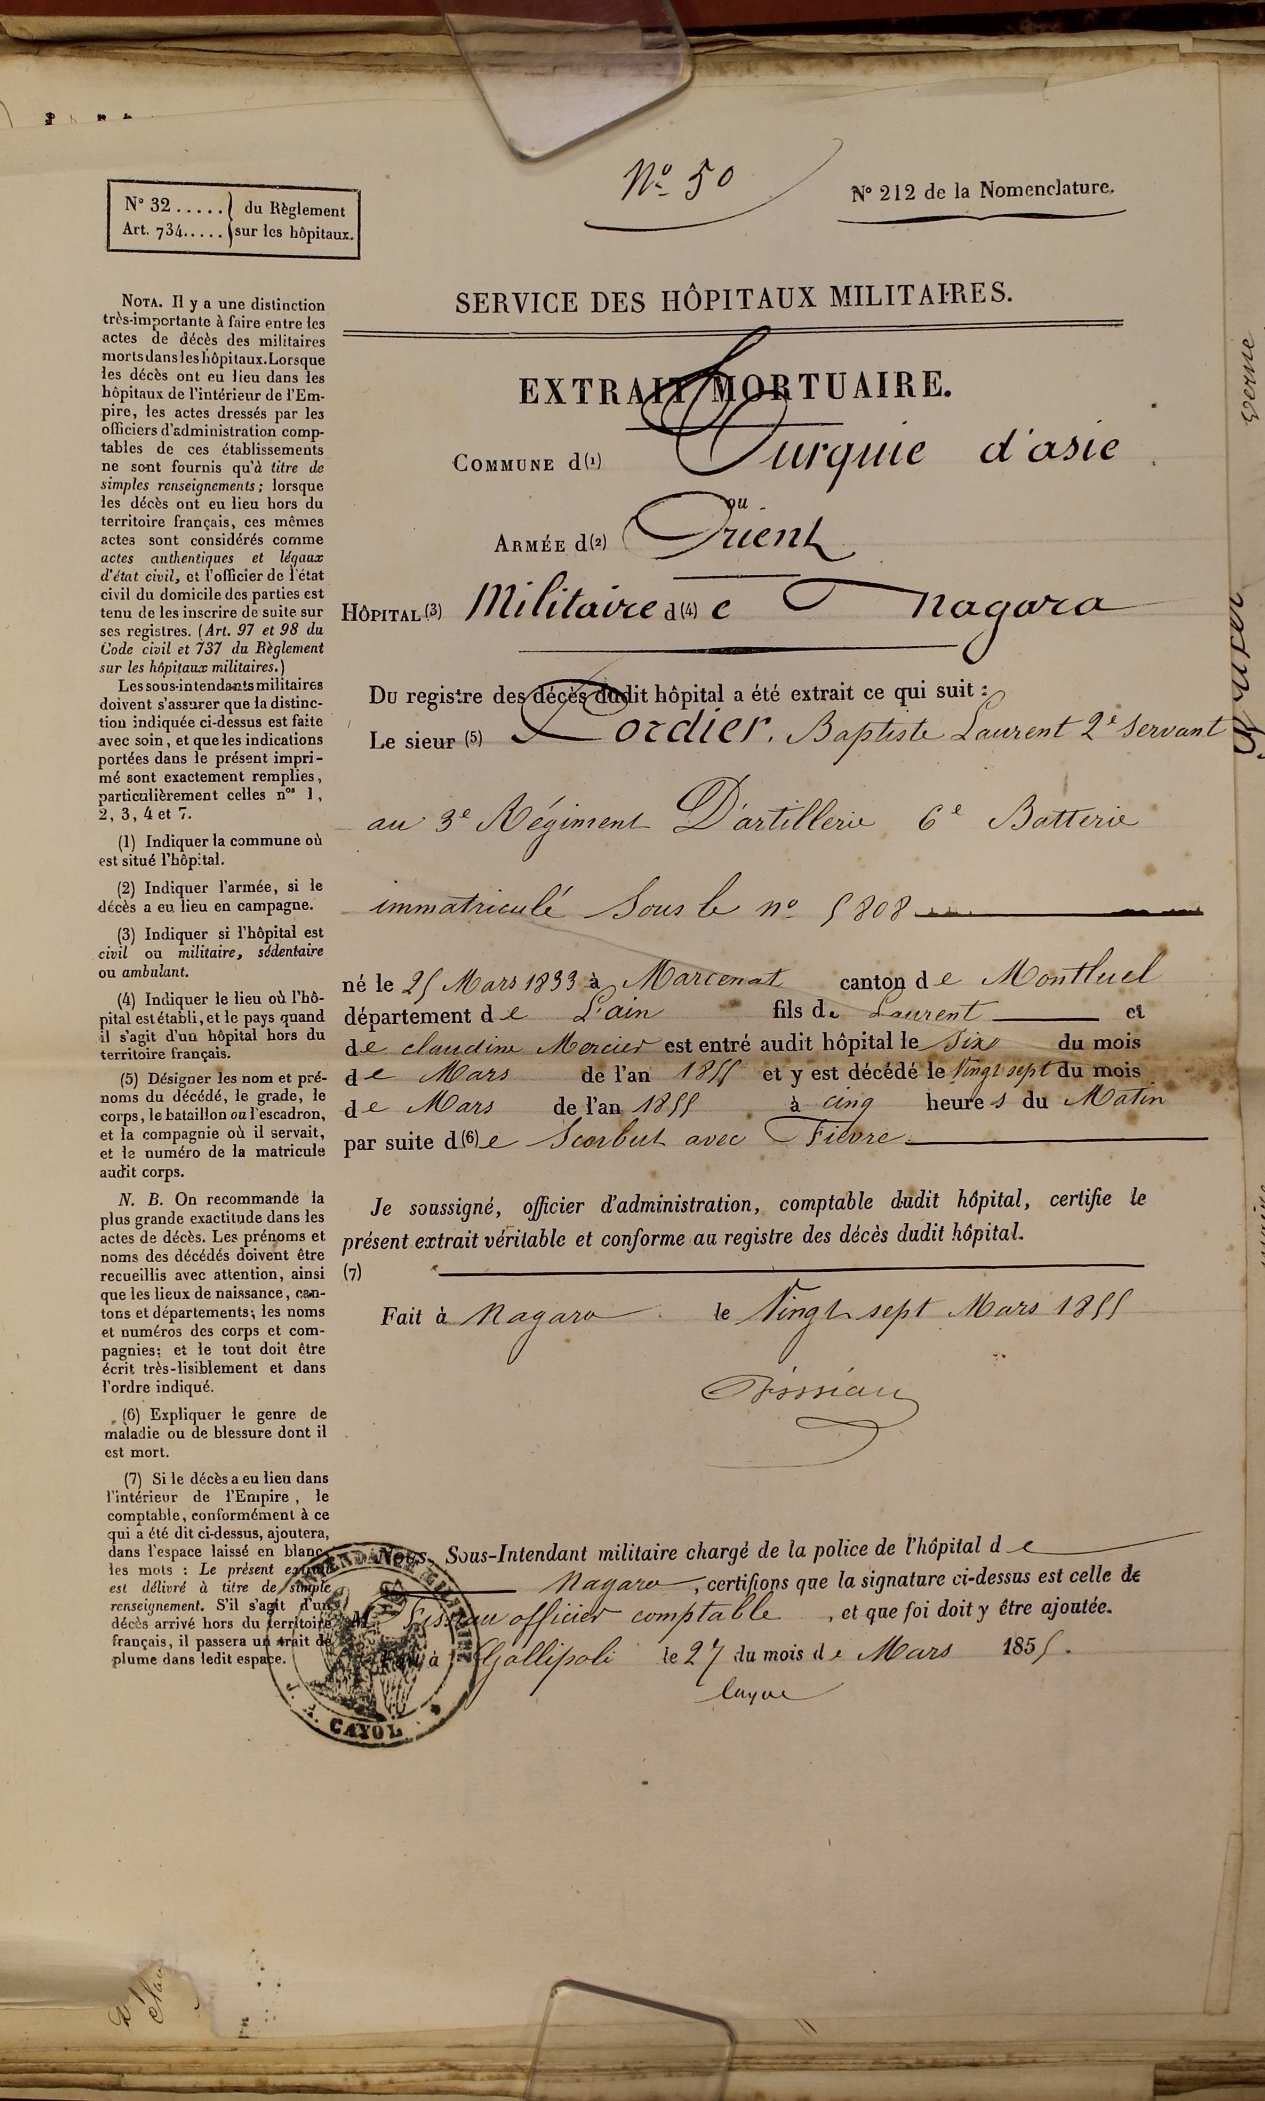 Nº 50
Nº 212 de la Nomenclature.
Nº 32 ..... } du Règlement
Art. 734..... } sur les hôpitaux.
SERVICE DES HÔPITAUX MILITAIRES.
EXTRAIT MORTUAIRE.
COMMUNE d(1) Turquie d'asie
ou
ARMÉE d(2) Orient
HÔPITAL (3) Militaire d(4) e nagara
Du registre des décès dudit hôpital a été extrait ce qui suit :
Le sieur (5) Cordier, Baptiste Laurent 2e Servant
au 3e Régiment D'artillerie 6e Batterie
immatriculé Sous le nº 5808
né le 25 Mars 1833 à Marcenat canton de Montluel
département de L'ain fils de Laurent et
de claudine Mercier est entré audit hôpital le Six du mois
de Mars de l'an 1855 et y est décédé le Vingt sept du mois
de Mars de l'an 1855 à cinq heures du Matin
par suite d(6)e Scorbut avec Fièvre
Je soussigné, officier d'administration, comptable dudit hôpital, certifie le
présent extrait véritable et conforme au registre des décès dudit hôpital.
(7)
Fait à Nagara le Vingt sept Mars 1855
Nous, Sous-Intendant militaire chargé de la police de l'hôpital de
Nagara, certifions que la signature ci-dessus est celle de
M. officier comptable, et que foi doit y être ajoutée.
à Gallipoli le 27 du mois de Mars 1855.
INTENDANCE MILITAIRE
CAYOL
NOTA. Il y a une distinction
très-importante à faire entre les
actes de décès des militaires
morts dans les hôpitaux. Lorsque
les décès ont eu lieu dans les
hôpitaux de l'intérieur de l'Em-
pire, les actes dressés par les
officiers d'administration comp-
tables de ces établissements
ne sont fournis qu'à titre de
simples renseignements; lorsque
les décès ont eu lieu hors du
territoire français, ces mêmes
actes sont considérés comme
actes authentiques et légaux
d'état civil, et l'officier de l'état
civil du domicile des parties est
tenu de les inscrire de suite sur
ses registres. (Art. 97 et 98 du
Code civil et 737 du Règlement
sur les hôpitaux militaires.)
Les sous-intendants militaires
doivent s'assurer que la distinc-
tion indiquée ci-dessus est faite
avec soin, et que les indications
portées dans le présent impri-
mé sont exactement remplies,
particulièrement celles nos 1,
2, 3, 4 et 7.
(1) Indiquer la commune où
est situé l'hôpital.
(2) Indiquer l'armée, si le
décès a eu lieu en campagne.
(3) Indiquer si l'hôpital est
civil ou militaire, sédentaire
ou ambulant.
(4) Indiquer le lieu où l'hô-
pital est établi, et le pays quand
il s'agit d'un hôpital hors du
territoire français.
(5) Désigner les nom et pré-
noms du décédé, le grade, le
corps, le bataillon ou l'escadron,
et la compagnie où il servait,
et le numéro de la matricule
audit corps.
N. B. On recommande la
plus grande exactitude dans les
actes de décès. Les prénoms et
noms des décédés doivent être
recueillis avec attention, ainsi
que les lieux de naissance, can-
tons et départements; les noms
et numéros des corps et com-
pagnies; et le tout doit être
écrit très-lisiblement et dans
l'ordre indiqué.
(6) Expliquer le genre de
maladie ou de blessure dont il
est mort.
(7) Si le décès a eu lieu dans
l'intérieur de l'Empire, le
comptable, conformément à ce
qui a été dit ci-dessus, ajoutera,
dans l'espace laissé en blanc,
les mots : Le présent extrait
est délivré à titre de simple
renseignement. S'il s'agit d'un
décès arrivé hors du territoire
français, il passera un trait de
plume dans ledit espace.